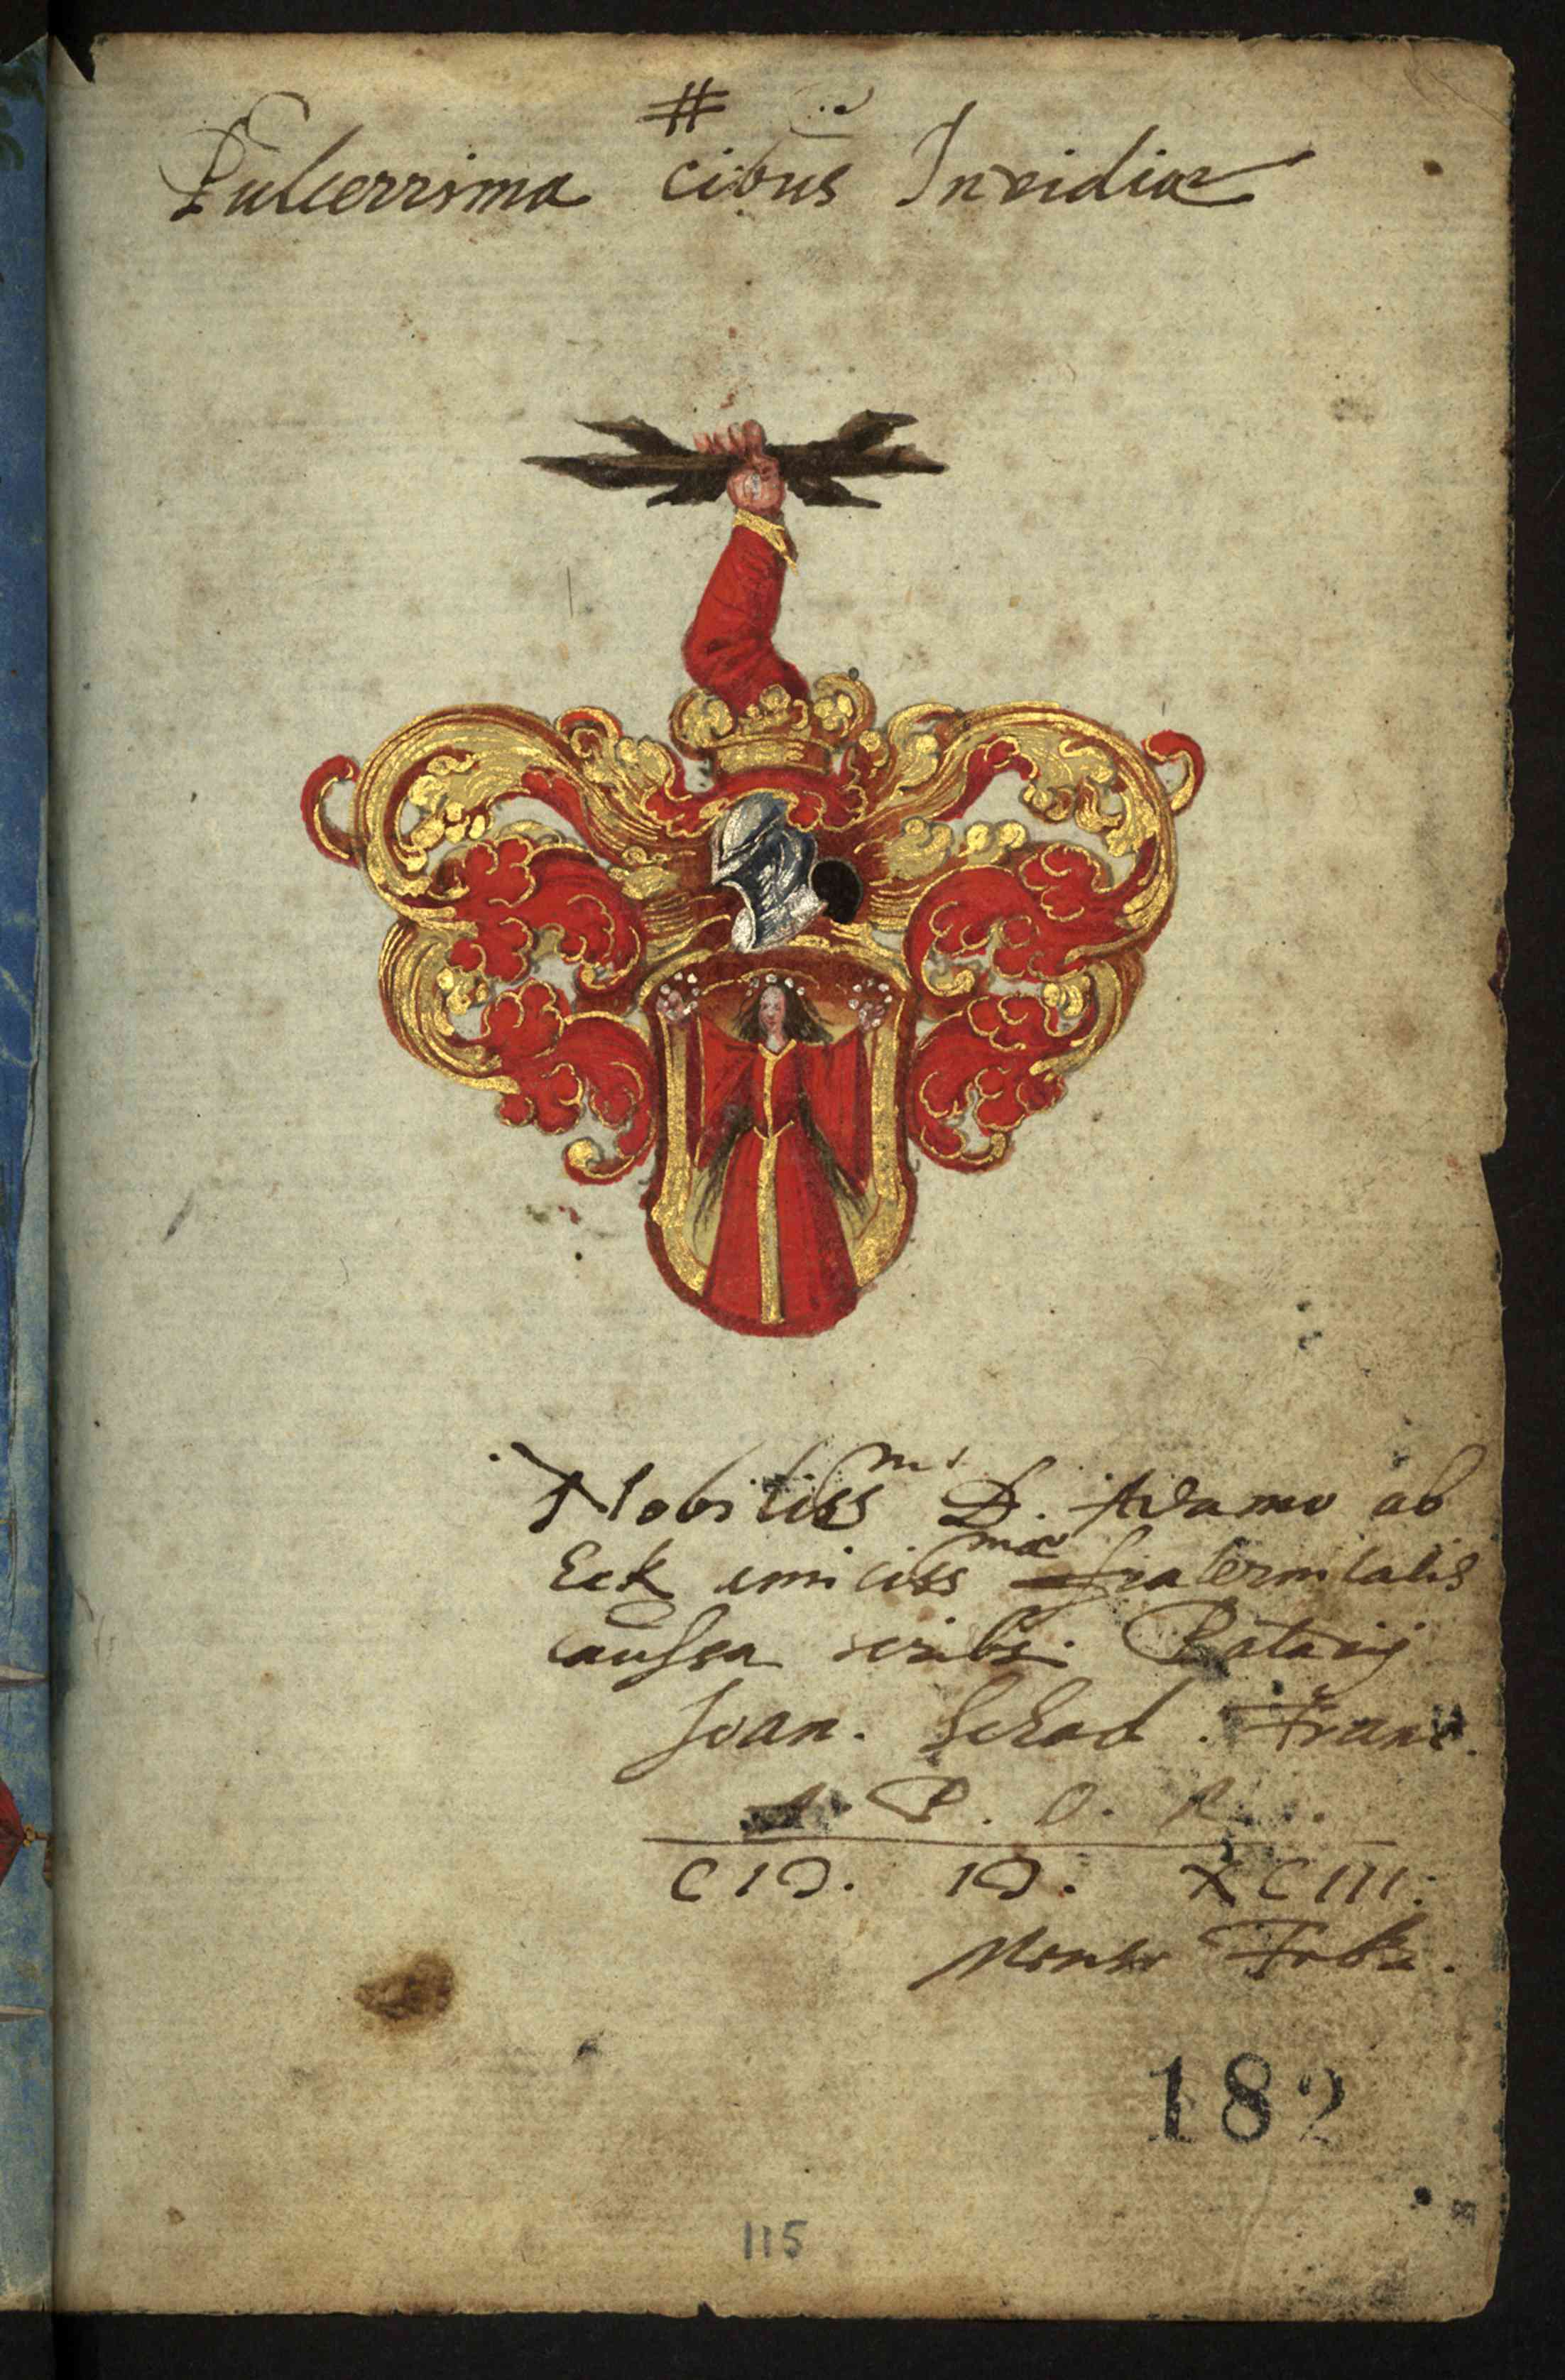 #
Pulcerrima cibus Invidiae
Nobiliss mi D. Adamo ab
Eck amiciss mae fraternitatis
caussa scribs. Patavij
Joan. Schad. Franc.
P. O. R.
CIↃ. IↃ. XCIII.
Mense Febr.
182
115